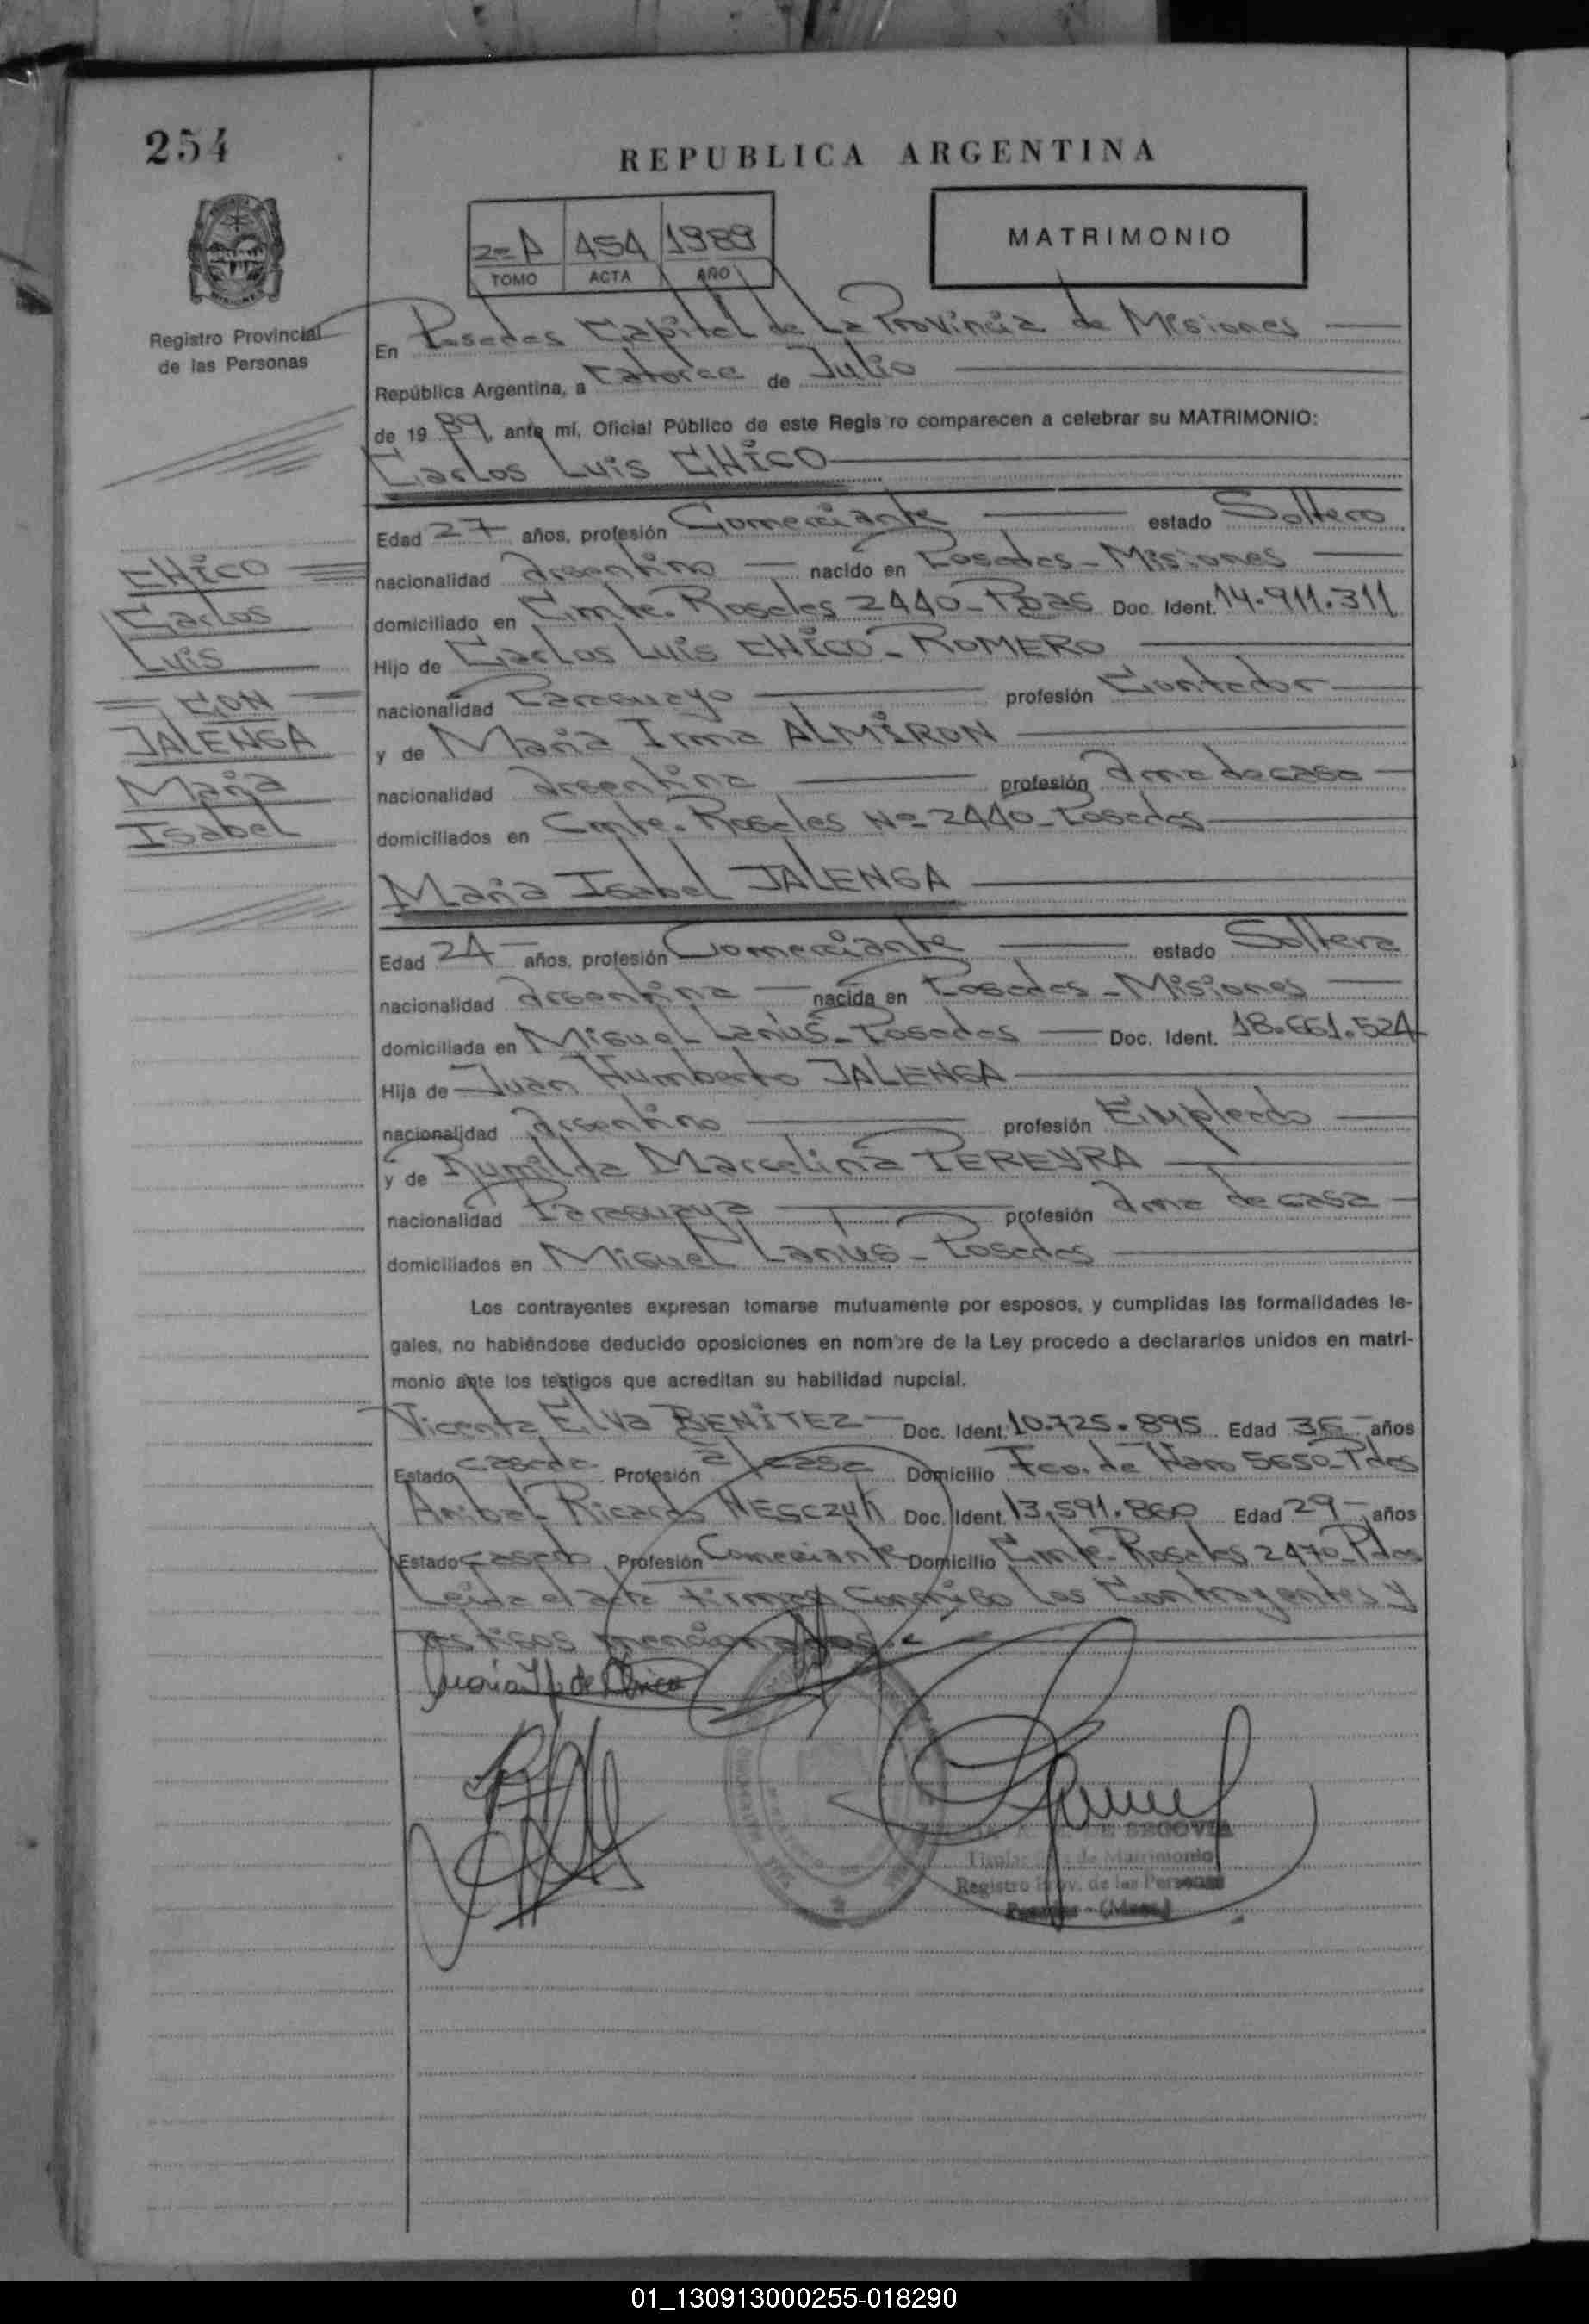 254
REPUBLICA ARGENTINA
2=A 454 1989
TOMO ACTA AÑO
MATRIMONIO
Registro Provincial
de las Personas
En Posadas Capital de La Provincia de Misiones
República Argentina, a Catorce de Julio
de 19 89, ante mí, Oficial Público de este Regis ro comparecen a celebrar su MATRIMONIO:
Carlos Luis CHICO
Edad 27 años, profesión Comerciante estado Soltero
nacionalidad Argentino nacido en Posadas - Misiones
domiciliado en Cmte. Rosales 2440 - Pdas Doc. Ident. 14.911.311
Hijo de Carlos Luis CHICO - ROMERO
nacionalidad Paraguayo profesión Contador
y de María Irma ALMIRON
nacionalidad Argentina profesión Ama de casa
domiciliados en Cmte. Rosales Nº 2440 - Posadas
CHICO
Carlos
Luis
CON
JALENGA
María
Isabel
María Isabel JALENGA
Edad 24 años, profesión Comerciante estado Soltera
nacionalidad Argentina nacida en Posadas - Misiones
domiciliada en Miguel Lanús - Posadas Doc. Ident. 18.661.524
Hija de Juan Humberto JALENGA
nacionalidad Argentino profesión Empleado
y de Rumilda Marcelina PEREYRA
nacionalidad Paraguaya profesión Ama de casa
domiciliados en Miguel Lanús - Posadas
Los contrayentes expresan tomarse mutuamente por esposos, y cumplidas las formalidades le-
gales, no habiéndose deducido oposiciones en nombre de la Ley procedo a declararlos unidos en matri-
monio ante los testigos que acreditan su habilidad nupcial.
Vicenta Elva BENITEZ Doc. Ident. 10.725.895 Edad 36 años
Estado casada Profesión a/casa Domicilio Fco. de Haro 5650 - Pdas
Anibal Ricardo NESCZUK Doc. Ident. 13.591.860 Edad 29 años
Estado casado Profesión Comerciante Domicilio Cmte. Rosales 2470 - Pdas
Leída el acta firman conmigo los Contrayentes y
testigos mencionados.
María J. de Chico
DE SEGOVIA
Titular de Matrimonio
Registro Prov. de las Personas
Posadas - (Mnes.)
01_130913000255-018290